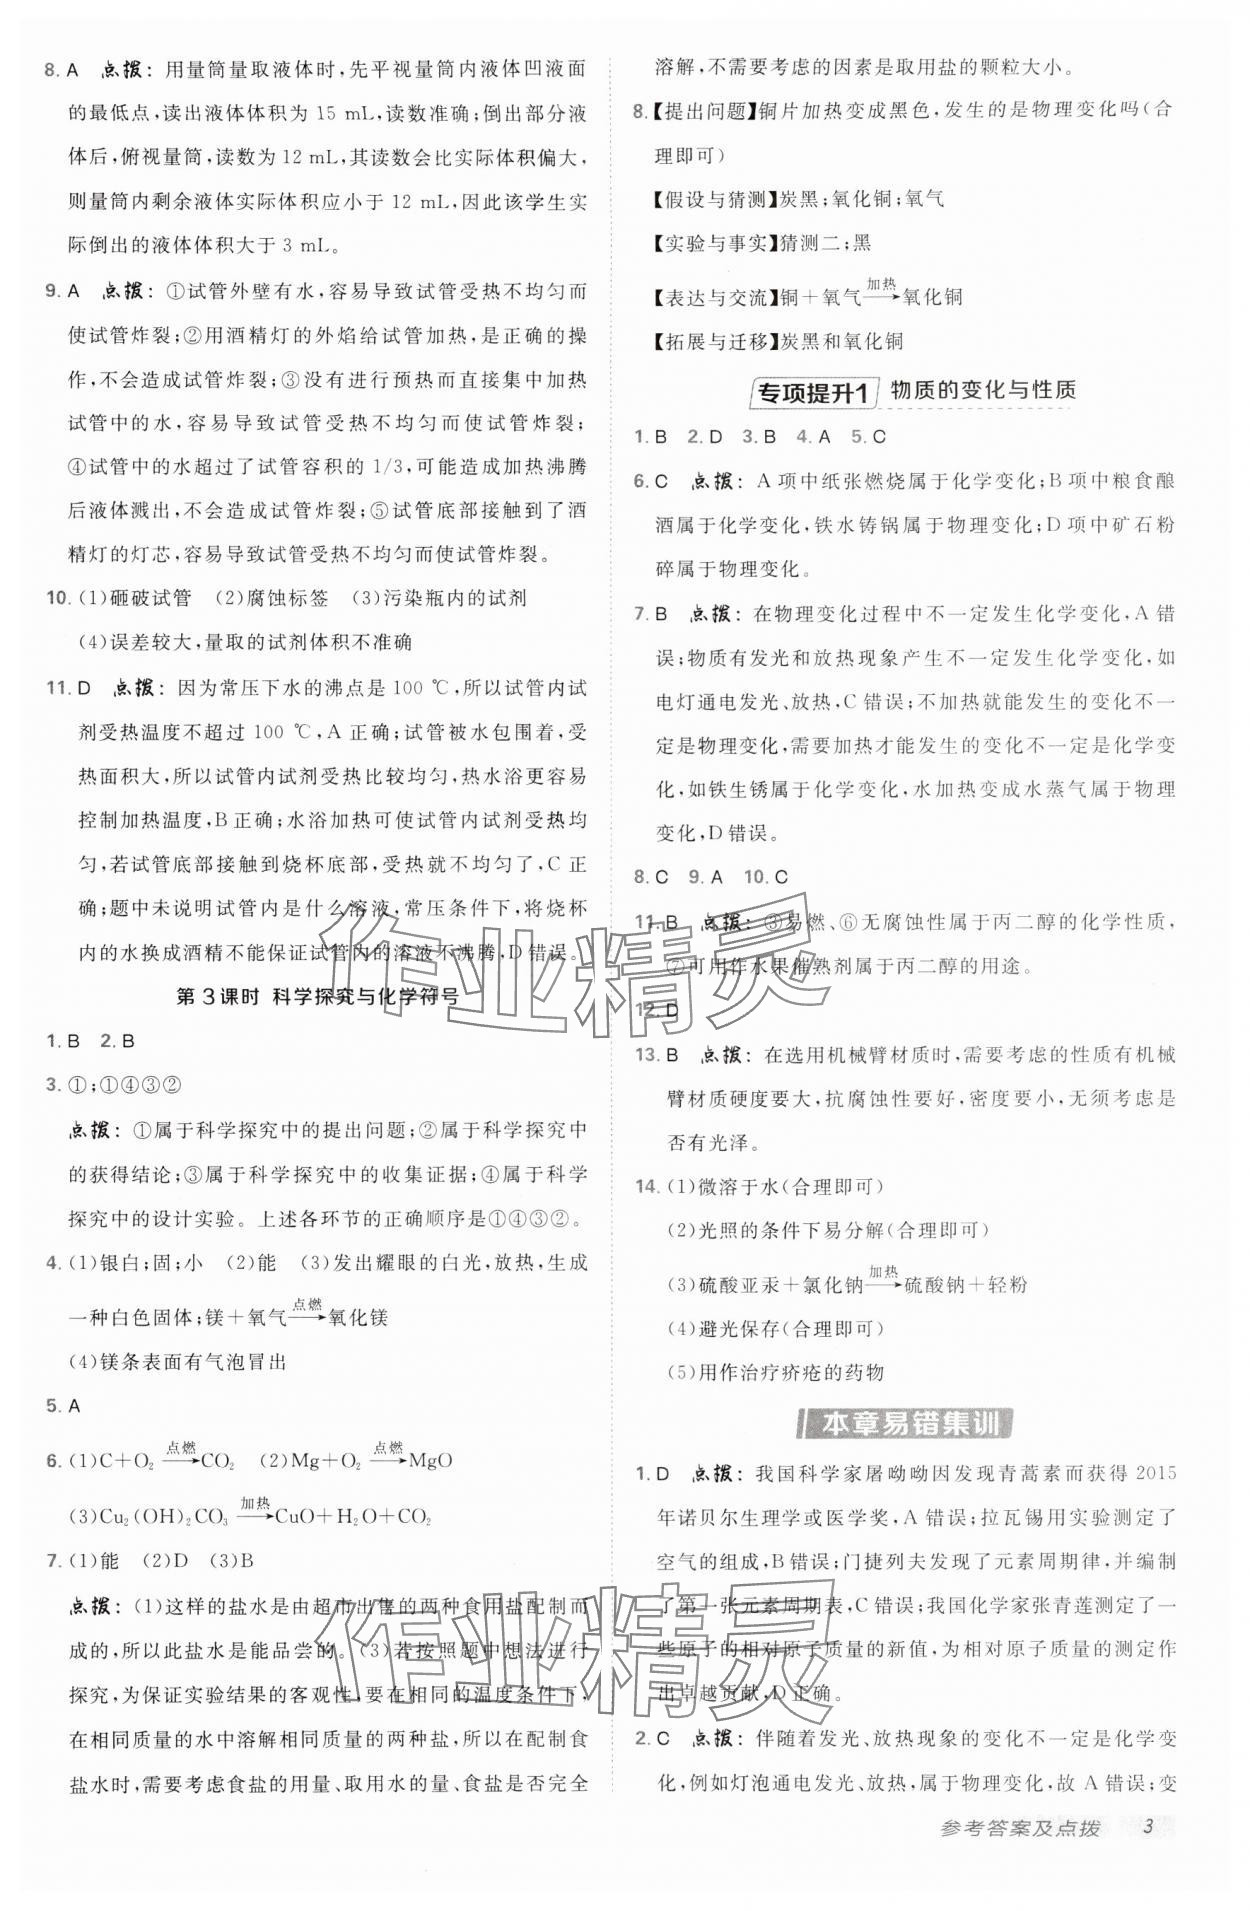 8. A 点拨：用量筒量取液体时,先平视量筒内液体凹液面
的最低点,读出液体体积为 15 mL,读数准确;倒出部分液
体后,俯视量筒,读数为 12 mL,其读数会比实际体积偏大,
则量筒内剩余液体实际体积应小于 12 mL,因此该学生实
际倒出的液体体积大于 3 mL。
9. A 点拨：①试管外壁有水,容易导致试管受热不均匀而
使试管炸裂;②用酒精灯的外焰给试管加热,是正确的操
作,不会造成试管炸裂;③没有进行预热而直接集中加热
试管中的水,容易导致试管受热不均匀而使试管炸裂;
④试管中的水超过了试管容积的 1/3,可能造成加热沸腾
后液体溅出,不会造成试管炸裂;⑤试管底部接触到了酒
精灯的灯芯,容易导致试管受热不均匀而使试管炸裂。
10. (1)砸破试管 (2)腐蚀标签 (3)污染瓶内的试剂
(4)误差较大,量取的试剂体积不准确
11. D 点拨：因为常压下水的沸点是 100 ℃,所以试管内试
剂受热温度不超过 100 ℃,A 正确;试管被水包围着,受
热面积大,所以试管内试剂受热比较均匀,热水浴更容易
控制加热温度,B正确;水浴加热可使试管内试剂受热均
匀,若试管底部接触到烧杯底部,受热就不均匀了,C 正
确;题中未说明试管内是什么溶液,常压条件下,将烧杯
内的水换成酒精不能保证试管内的溶液不沸腾,D错误。
第 3 课时 科学探究与化学符号
1. B 2. B
3. ①;①④③②
点拨：①属于科学探究中的提出问题;②属于科学探究中
的获得结论;③属于科学探究中的收集证据;④属于科学
探究中的设计实验。上述各环节的正确顺序是①④③②。
4. (1)银白;固;小 (2)能 (3)发出耀眼的白光,放热,生成
一种白色固体;镁＋氧气 点燃→ 氧化镁
(4)镁条表面有气泡冒出
5. A
6. (1)C＋O₂ 点燃→ CO₂ (2)Mg＋O₂ 点燃→ MgO
(3)Cu₂(OH)₂CO₃ 加热→ CuO＋H₂O＋CO₂
7. (1)能 (2)D (3)B
点拨：(1)这样的盐水是由超市出售的两种食用盐配制而
成的,所以此盐水是能品尝的。(3)若按照题中想法进行
探究,为保证实验结果的客观性,要在相同的温度条件下,
在相同质量的水中溶解相同质量的两种盐,所以在配制食
盐水时,需要考虑食盐的用量、取用水的量、食盐是否完全
溶解,不需要考虑的因素是取用盐的颗粒大小。
8. 【提出问题】铜片加热变成黑色,发生的是物理变化吗(合
理即可)
【假设与猜测】炭黑;氧化铜;氧气
【实验与事实】猜测二;黑
【表达与交流】铜＋氧气 加热→ 氧化铜
【拓展与迁移】炭黑和氧化铜
专项提升1 物质的变化与性质
1. B 2. D 3. B 4. A 5. C
6. C 点拨：A 项中纸张燃烧属于化学变化;B 项中粮食酿
酒属于化学变化,铁水铸锅属于物理变化;D 项中矿石粉
碎属于物理变化。
7. B 点拨：在物理变化过程中不一定发生化学变化,A 错
误;物质有发光和放热现象产生不一定发生化学变化,如
电灯通电发光、放热,C 错误;不加热就能发生的变化不一
定是物理变化,需要加热才能发生的变化不一定是化学变
化,如铁生锈属于化学变化,水加热变成水蒸气属于物理
变化,D 错误。
8. C 9. A 10. C
11. B 点拨：③易燃、⑥无腐蚀性属于丙二醇的化学性质,
⑦可用作水果催熟剂属于丙二醇的用途。
12. D
13. B 点拨：在选用机械臂材质时,需要考虑的性质有机械
臂材质硬度要大,抗腐蚀性要好,密度要小,无须考虑是
否有光泽。
14. (1)微溶于水(合理即可)
(2)光照的条件下易分解(合理即可)
(3)硫酸亚汞＋氯化钠 加热→ 硫酸钠＋轻粉
(4)避光保存(合理即可)
(5)用作治疗疥疮的药物
本章易错集训
1. D 点拨：我国科学家屠呦呦因发现青蒿素而获得 2015
年诺贝尔生理学或医学奖,A 错误;拉瓦锡用实验测定了
空气的组成,B 错误;门捷列夫发现了元素周期律,并编制
了第一张元素周期表,C 错误;我国化学家张青莲测定了一
些原子的相对原子质量的新值,为相对原子质量的测定作
出卓越贡献,D正确。
2. C 点拨：伴随着发光、放热现象的变化不一定是化学变
化,例如灯泡通电发光、放热,属于物理变化,故 A 错误;变
参考答案及点拨 3
作业精灵
作业精灵